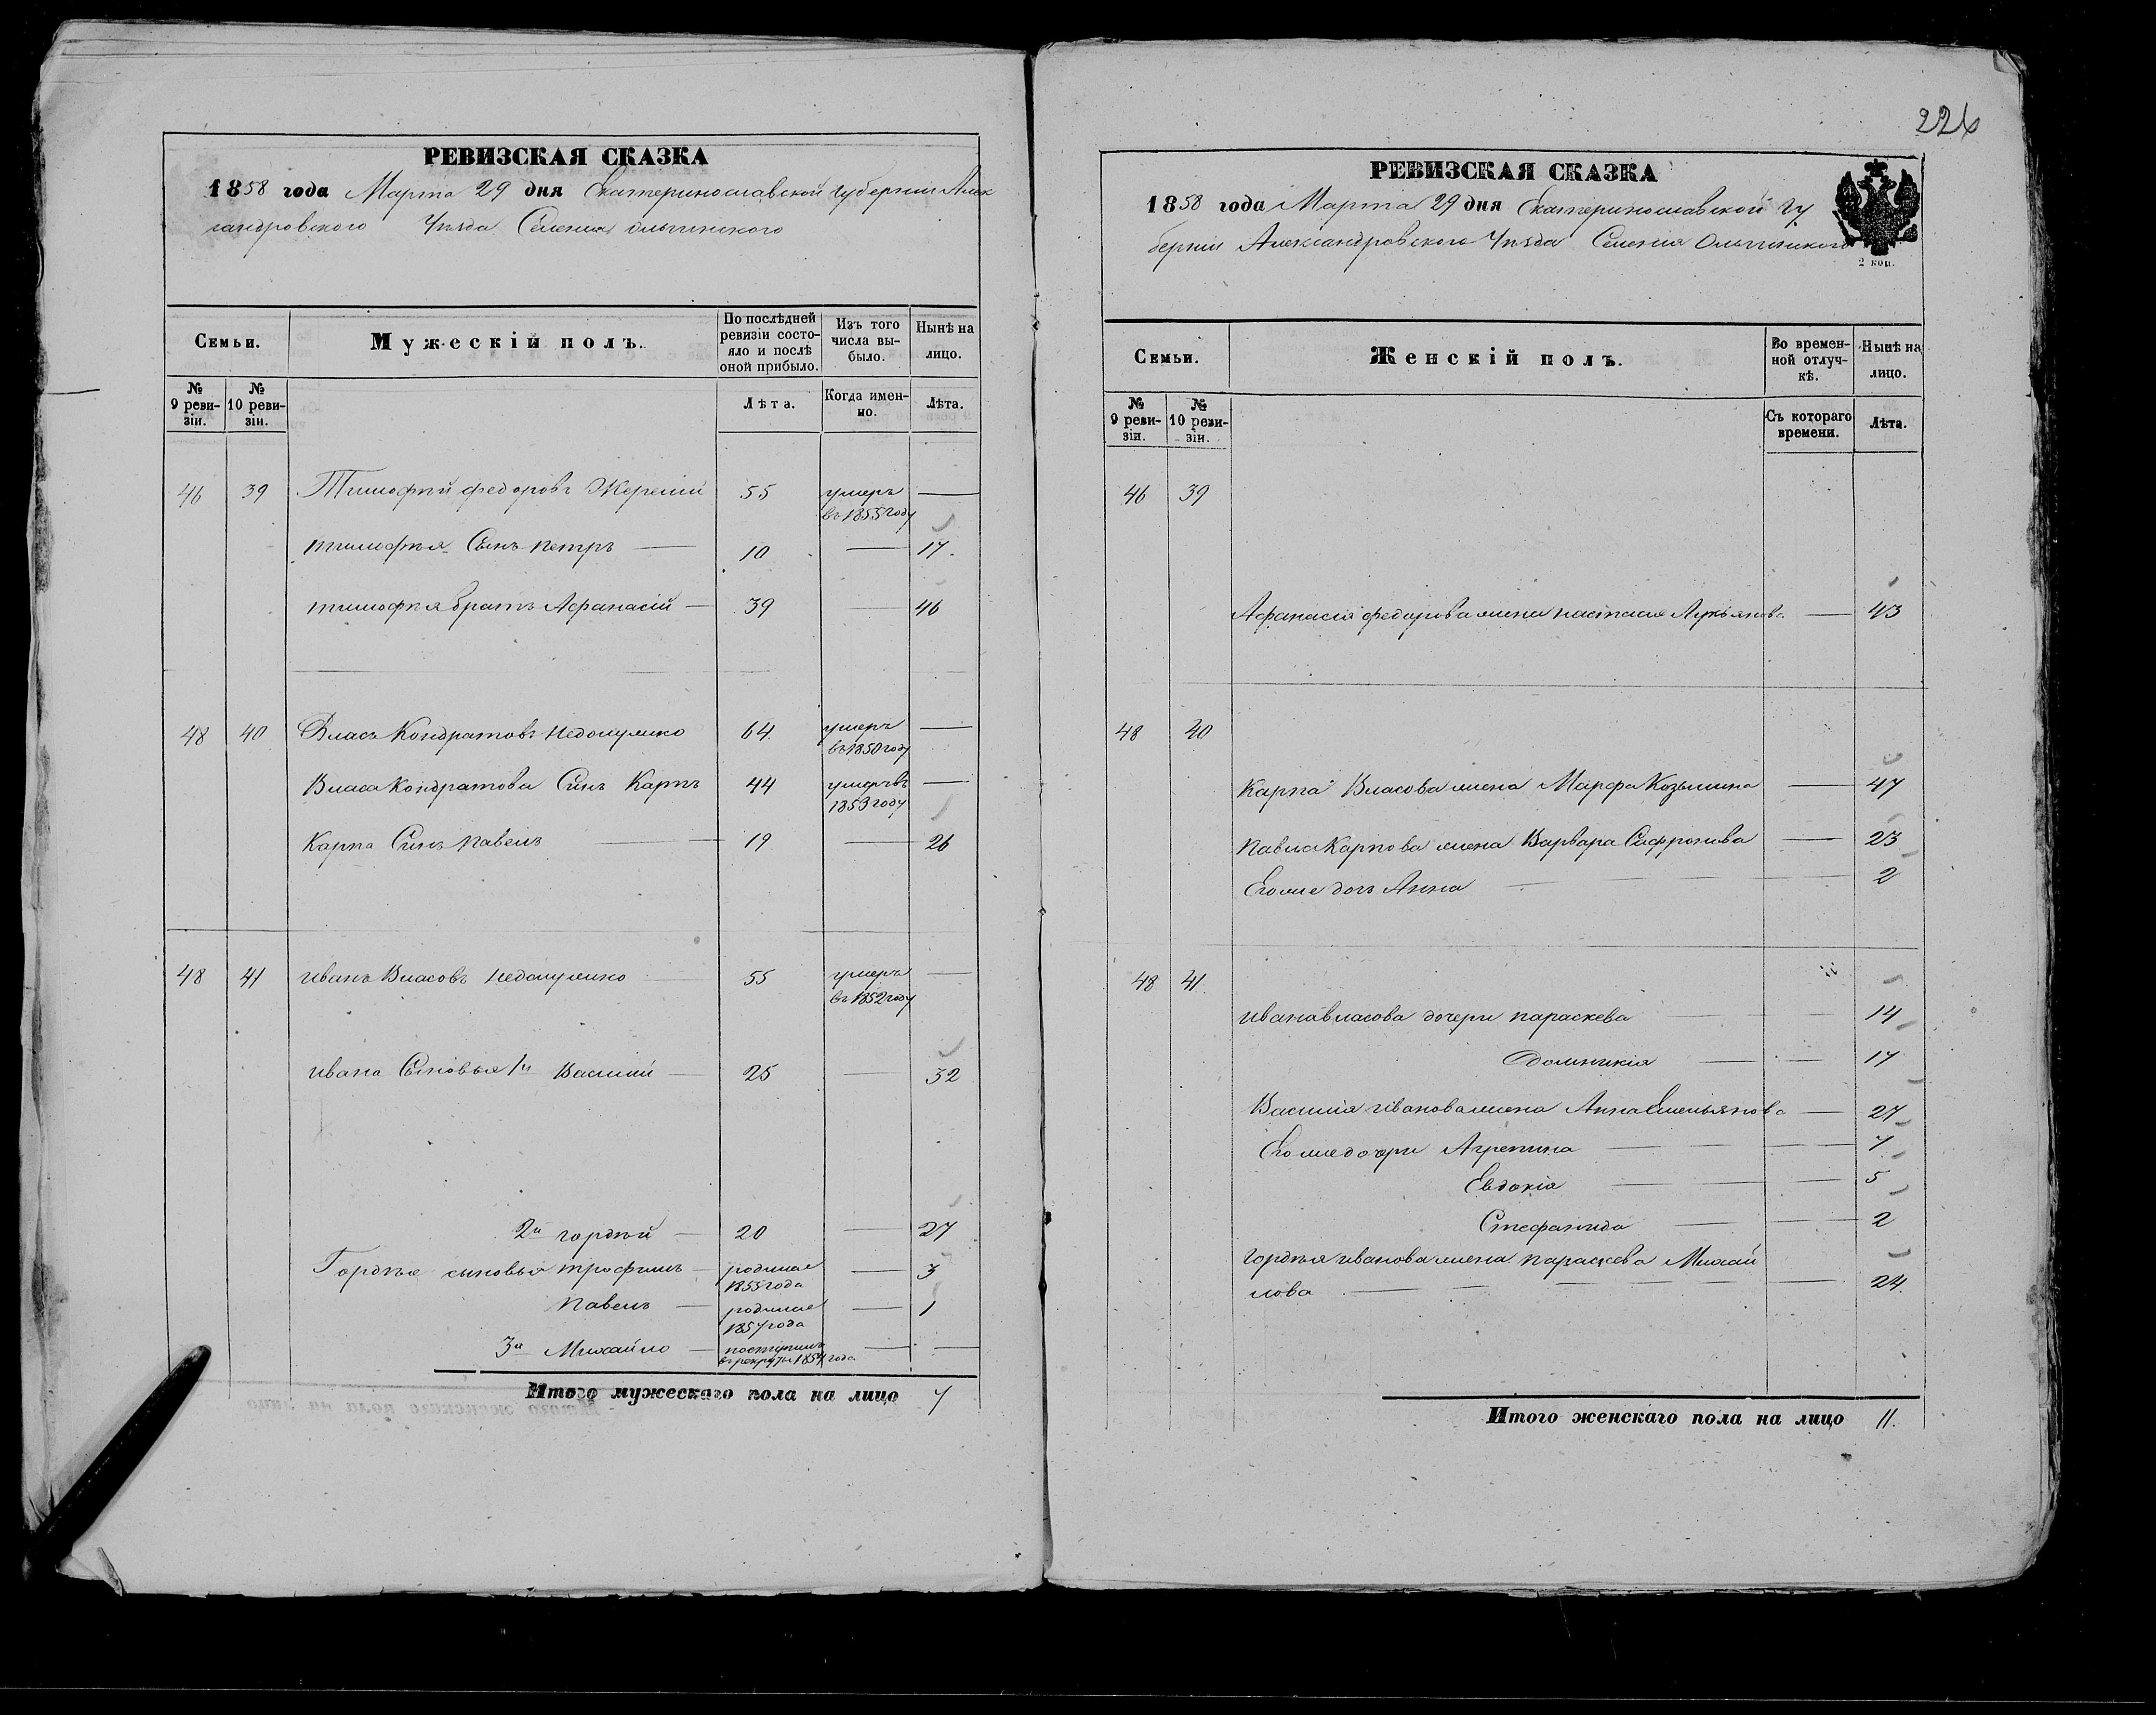 РЕВИЗСКАЯ СКАЗКА
1858 года Марта 29 дня Екатеринославской губернии Алек
сандровского Уѣзда Селения Ольгинского
Семьи.
Мужескій полъ.
По послѣдней ревизіи состояло и послѣ оной прибыло.
Изъ того числа выбыло.
Нынѣ на лицо.
№ 9 ревизіи.
№ 10 ревизіи.
Лѣта.
Когда именно.
Лѣта.
46 39 Тимофѣй федоровъ 55 умеръ —
въ 1855 году
тимофѣя Сынъ петръ — 10 — 17.
тимофѣя братъ Афанасій — 39 — 46
48 40 Власъ Кондратовъ 64 умеръ —
въ 1850 году
Власа Кондратова Сынъ Карпъ 44 умеръ въ —
1853 году
Карпа Сынъ павелъ — 19 — 26
48 41 иванъ Власовъ 55 умеръ —
въ 1852 году
ивана Сыновья 1й Василий — 25 — 32
2й гордѣй — 20 — 27
Гордѣя сыновья трофимъ — родился — 3
1855 года
павелъ — родился — 1
1857 года
3й Михайло — поступилъ — —
въ рекруты 1854 года
Итого мужескаго пола на лицо 7
226
РЕВИЗСКАЯ СКАЗКА
1858 года Марта 29 дня Екатеринославской Гу
берніи Александровского Уѣзда Селенія Ольгинского
2 коп.
Семьи.
Женскій полъ.
Во временной отлучкѣ.
Нынѣ на лицо.
№ 9 ревизіи.
№ 10 ревизіи.
Съ котораго времени.
Лѣта.
46 39
Афанасія федорова жена настасия Лукьянова — 43
48 40
Карпа Власова жена Марфа Козьмина — 47
павла Карпова жена Варвара Сафронова — 23
Егоже дочь Анна — 2
48 41.
ивана власова дочери параскева — 14
Домникія — 17
Василия иванова жена Анна Емельянова — 27
Егоже дочери Агрепина — 7
Евдокія — 5
Стефанида — 2
гордѣя иванова жена параскева Михай
лова — 24.
Итого женскаго пола на лицо 11.